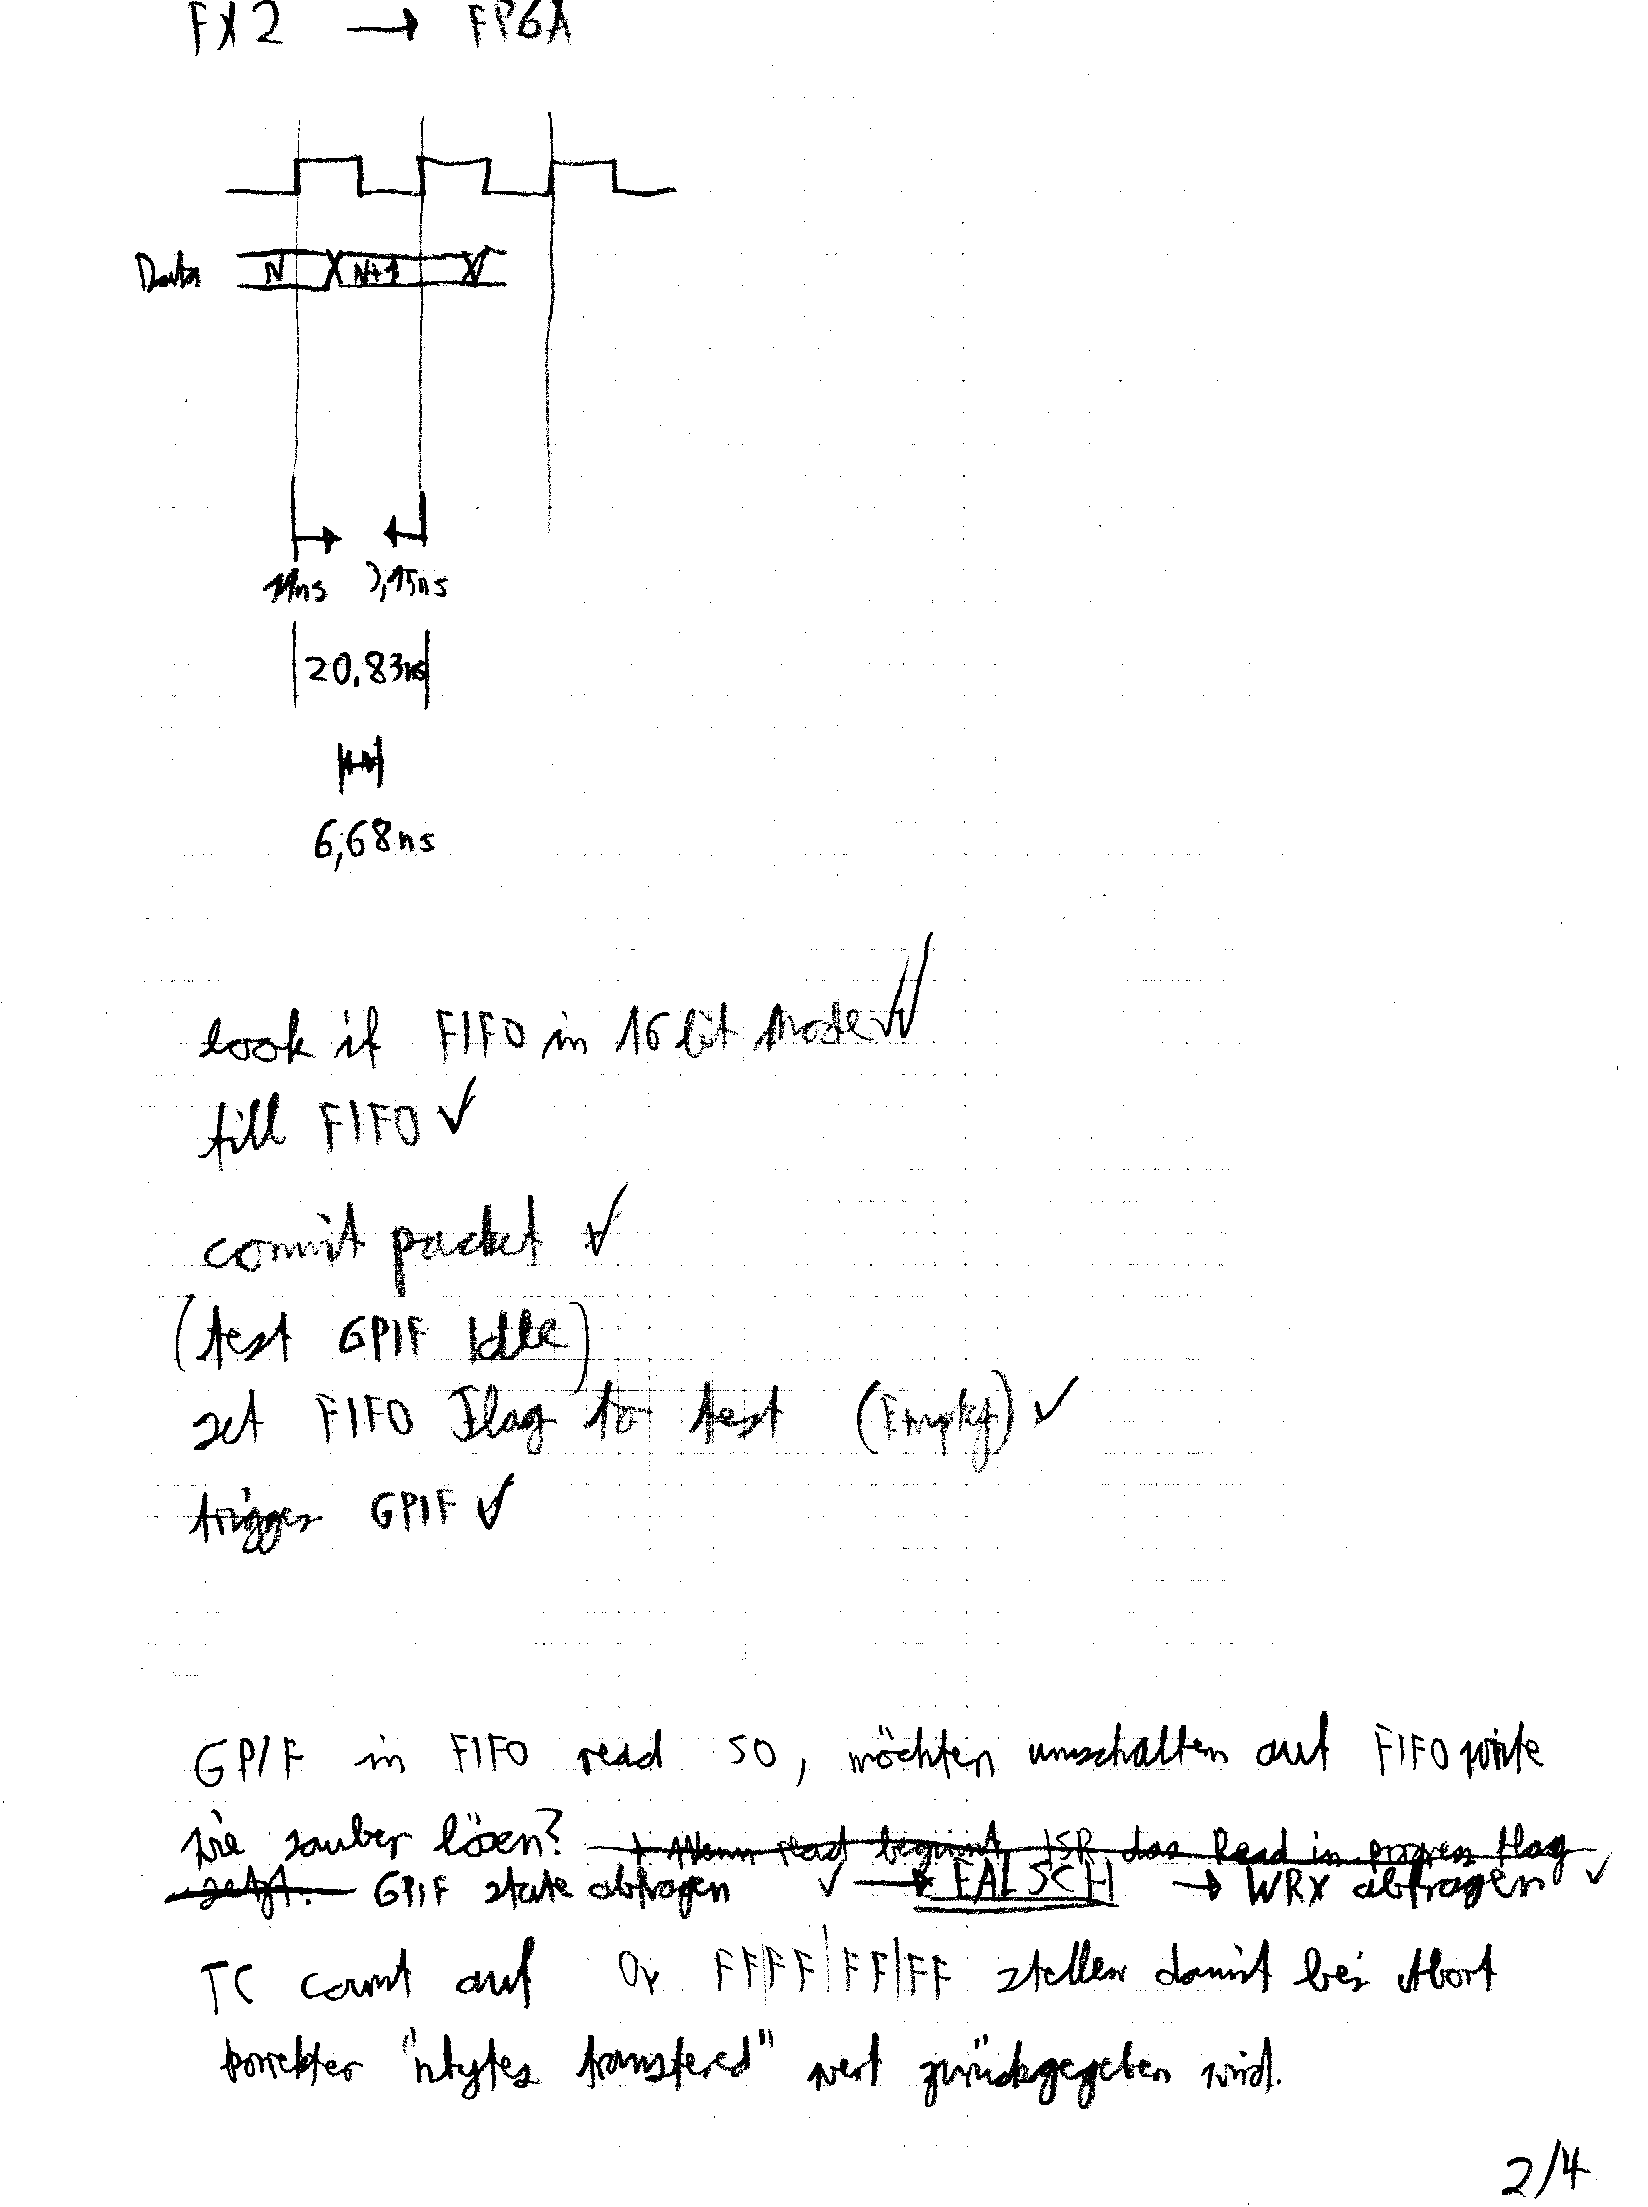 FX2 → FPGA
Data N X N+1 X
11ns 3,15ns
20,83ns
6,68ns
look if FIFO in 16 bit Mode ✓✓
fill FIFO ✓
commit packet ✓
(test GPIF Idle)
set FIFO Flag to test (Empty) ✓
trigger GPIF ✓
GPIF in FIFO read SO, möchten umschalten auf FIFO write
wie sauber lösen? → Wenn read beginnt, ISR das Read in progress flag
setzt. GPIF state abfragen ✓ → FALSCH → WRX abfragen ✓
TC count auf 0x FF|FF|FF|FF stellen damit bei Abort
korrekter "nbytes transfered" wert zurückgegeben wird.
2/4